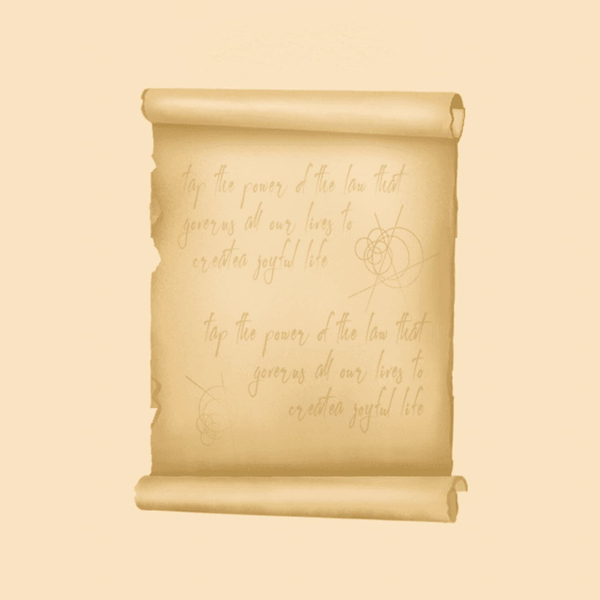 tap the power of the law that
governs all our lives to
createa joyful life
tap the power of the law that
governs all our lives to
createa joyful life